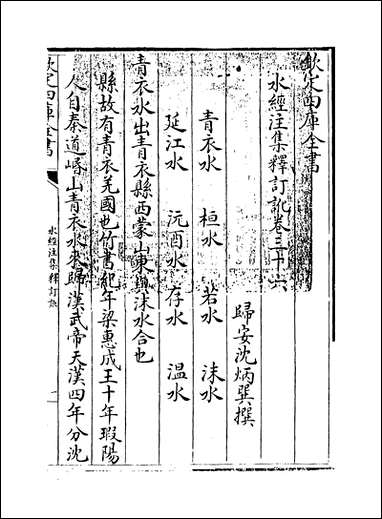 欽定四庫全書
水經注集釋訂訛卷三十六
歸安沈炳巽撰
青衣水 桓水 若水 沫水
延江水 沅酉水 存水 温水
青衣水出青衣縣西蒙山東與沫水合也
縣故有青衣羌國也竹書紀年梁惠成王十年瑕陽
人自秦道岷山青衣水來歸漢武帝天漢四年分沈
欽定四庫全書
水經注集釋訂訛
一